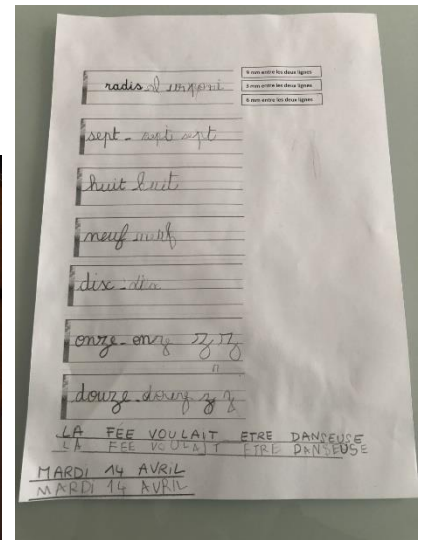 radis
9 mm entre les deux lignes
3 mm entre les deux lignes
6 mm entre les deux lignes
sept - sept sept
huit huit
neuf neuf
disc - dix
onze - onze z z
n
douze - douze z z
LA FÉE VOULAIT ETRE DANSEUSE
LA FEE VOULAIT ETRE DANSEUSE
MARDI 14 AVRIL
MARDI 14 AVRIL